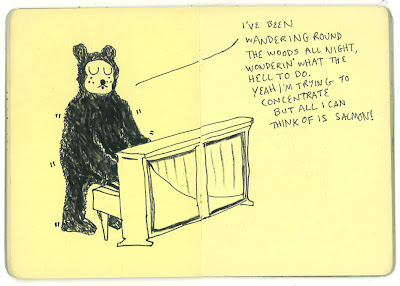 I'VE BEEN
WANDERING ROUND
THE WOODS ALL NIGHT,
WONDERIN' WHAT THE
HELL TO DO.
YEAH I'M TRYING TO
CONCENTRATE
BUT ALL I CAN
THINK OF IS SALMON!